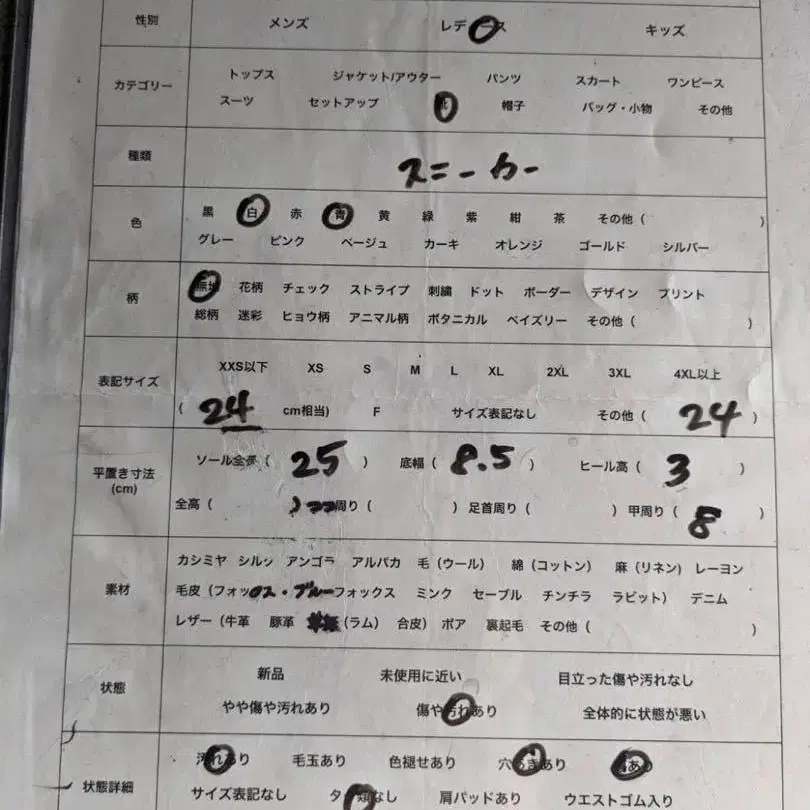 性別 メンズ レディース キッズ
トップス ジャケット/アウター パンツ スカート ワンピース
カテゴリー
スーツ セットアップ 靴 帽子 バッグ・小物 その他
種類 スニーカー
黒 白 赤 青 黄 緑 紫 紺 茶 その他 ( )
色
グレー ピンク ベージュ カーキ オレンジ ゴールド シルバー
無地 花柄 チェック ストライプ 刺繍 ドット ボーダー デザイン プリント
柄
総柄 迷彩 ヒョウ柄 アニマル柄 ボタニカル ペイズリー その他 ( )
XXS以下 XS S M L XL 2XL 3XL 4XL以上
表記サイズ
( 24 cm相当) F サイズ表記なし その他 ( 24 )
ソール全長 ( 25 ) 底幅 ( 8.5 ) ヒール高 ( 3 )
平置き寸法
(cm)
全高 ( ) 周り ( ) 足首周り ( ) 甲周り ( 8 )
カシミヤ シルク アンゴラ アルパカ 毛 (ウール) 綿 (コットン) 麻 (リネン) レーヨン
素材 毛皮 (フォックス・ブルーフォックス ミンク セーブル チンチラ ラビット) デニム
レザー (牛革 豚革 (ラム) 合皮) ボア 裏起毛 その他 ( )
新品 未使用に近い 目立った傷や汚れなし
状態
やや傷や汚れあり 傷や汚れあり 全体的に状態が悪い
汚れあり 毛玉あり 色褪せあり 穴あきあり あり
状態詳細
サイズ表記なし タグ類なし 肩パッドあり ウエストゴム入り